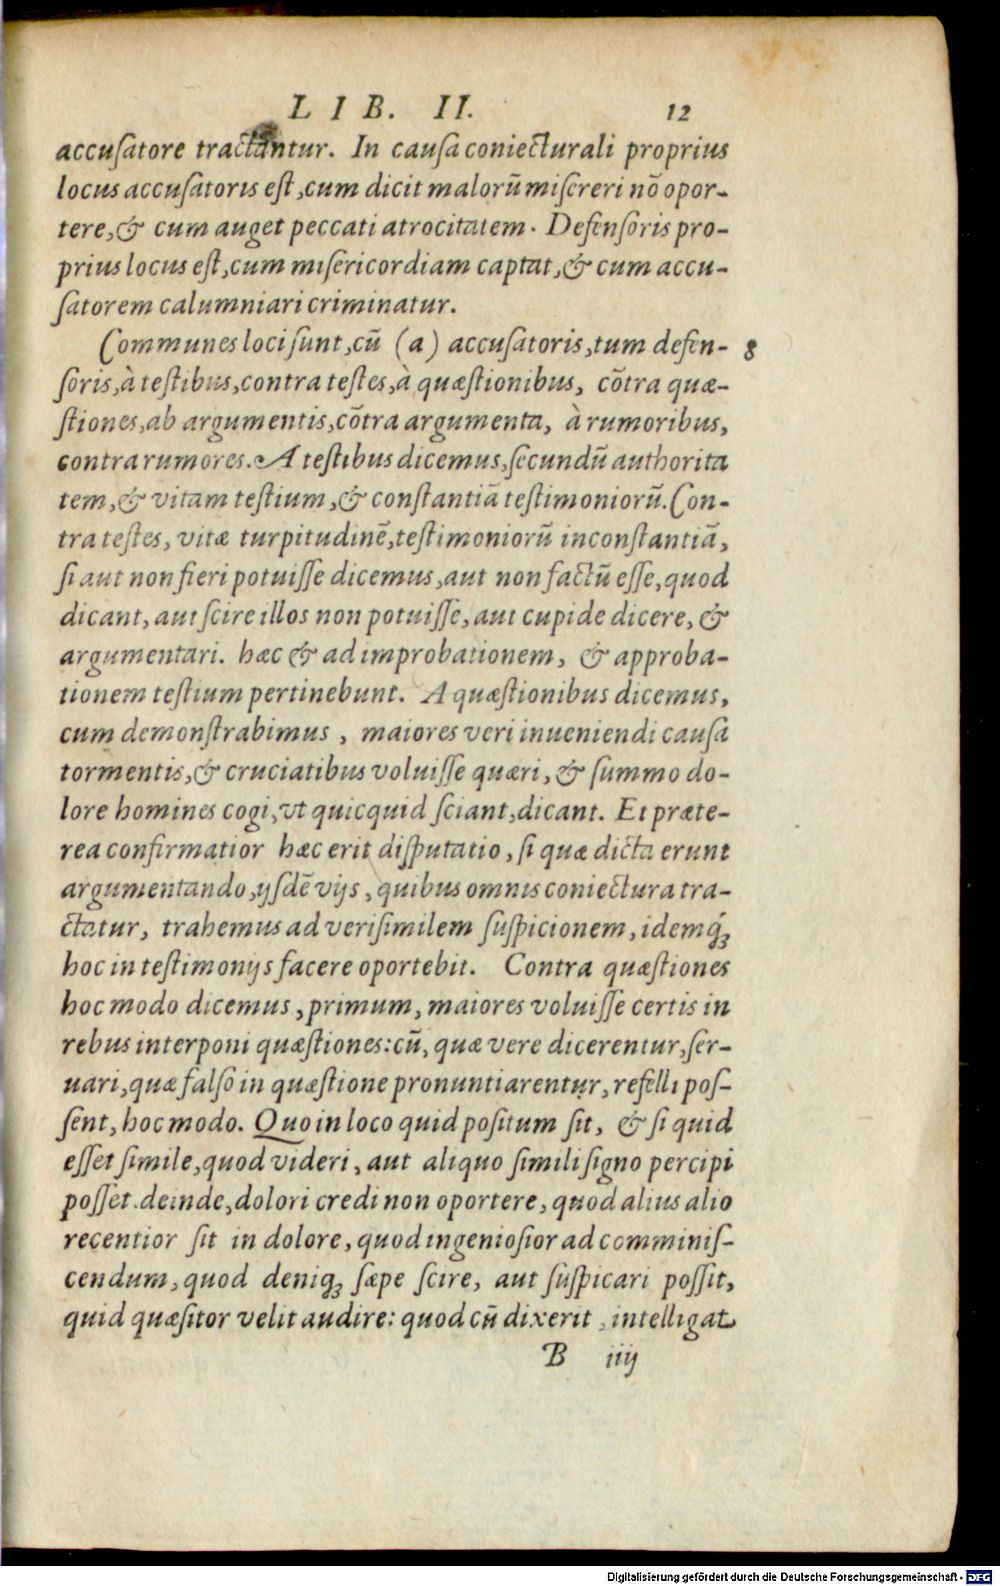 LIB. II. 12
accuſatore tractantur. In cauſa coniecturali proprius
locus accuſatoris eſt, cum dicit malorū miſereri nō opor-
tere, & cum auget peccati atrocitatem. Defenſoris pro-
prius locus eſt, cum miſericordiam captat, & cum accu-
ſatorem calumniari criminatur.
Communes loci ſunt, cū (a) accuſatoris, tum defen- 8
ſoris, à teſtibus, contra teſtes, à quæſtionibus, cōtra quæ-
ſtiones, ab argumentis, cōtra argumenta, à rumoribus,
contra rumores. A teſtibus dicemus, ſecundū authorita
tem, & vitam teſtium, & conſtantiā teſtimoniorū. Con-
tra teſtes, vitæ turpitudinē, teſtimoniorū inconſtantiā,
ſi aut non fieri potuiſſe dicemus, aut non factū eſſe, quod
dicant, aut ſcire illos non potuiſſe, aut cupide dicere, &
argumentari. hæc & ad improbationem, & approba-
tionem teſtium pertinebunt. A quæſtionibus dicemus,
cum demonſtrabimus, maiores veri inueniendi cauſa
tormentis, & cruciatibus voluiſſe quæri, & ſummo do-
lore homines cogi, vt quicquid ſciant, dicant. Et præte-
rea confirmatior hæc erit diſputatio, ſi quæ dicta erunt
argumentando, ijſdē vijs, quibus omnis coniectura tra-
ctatur, trahemus ad veriſimilem ſuſpicionem, idemq́ꝫ
hoc in teſtimonijs facere oportebit. Contra quæſtiones
hoc modo dicemus, primum, maiores voluiſſe certis in
rebus interponi quæſtiones: cū, quæ vere dicerentur, ſer-
uari, quæ falſo in quæſtione pronuntiarentur, refelli poſ-
ſent, hoc modo. Quo in loco quid poſitum ſit, & ſi quid
eſſet ſimile, quod videri, aut aliquo ſimili ſigno percipi
poſſet. deinde, dolori credi non oportere, quod alius alio
recentior ſit in dolore, quod ingenioſior ad comminiſ-
cendum, quod deniqꝫ ſæpe ſcire, aut ſuſpicari poſſit,
quid quæſitor velit audire: quod cū dixerit, intelligat
B iiij
Digitalisierung gefördert durch die Deutsche Forschungsgemeinschaft - DFG